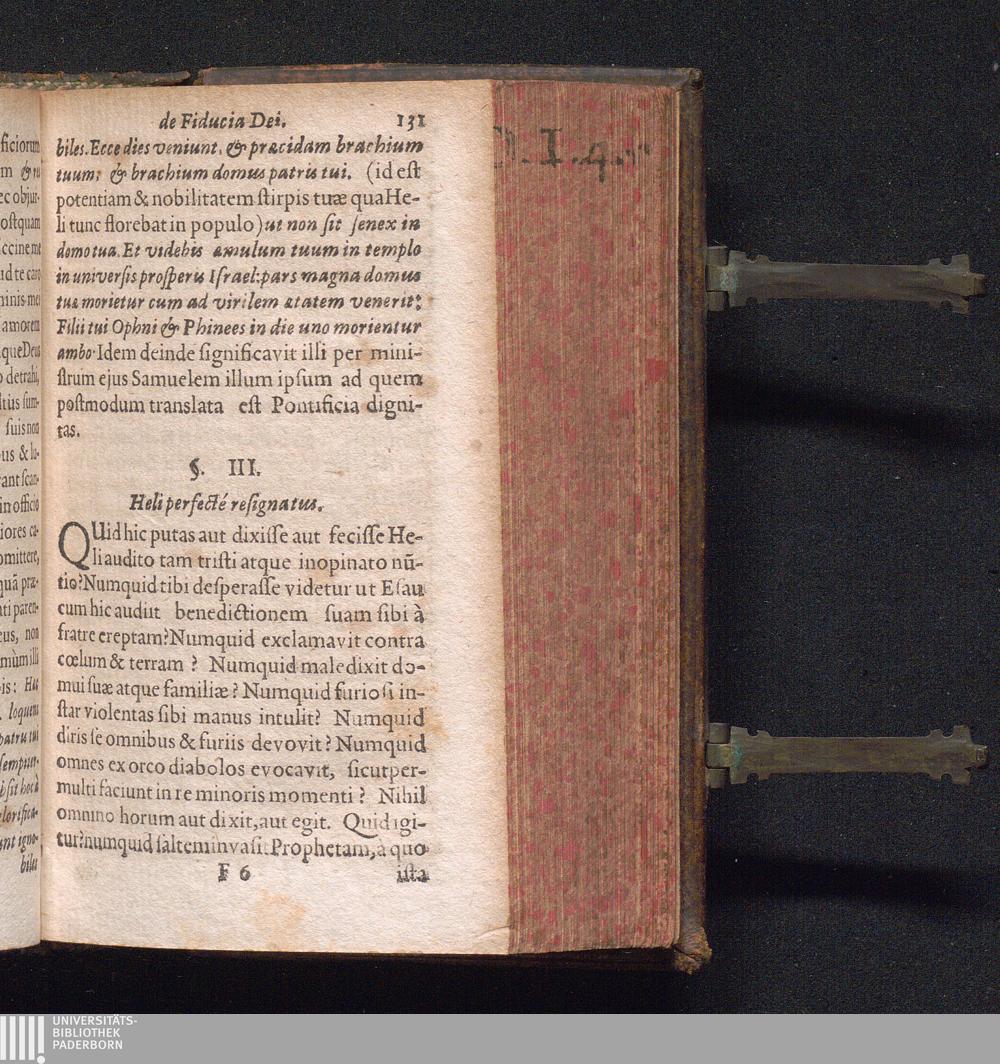 de Fiducia Dei. 131
biles. Ecce dies veniunt, & præcidam brachium
tuum: & brachium domus patris tui. (id est
potentiam & nobilitatem stirpis tuæ qua He-
li tunc florebat in populo) ut non sit senex in
domo tua. Et videbis æmulum tuum in templo
in universis prosperis Israel: pars magna domus
tuæ morietur cum ad virilem ætatem venerit:
Filii tui Ophni & Phinees in die uno morientur
ambo. Idem deinde significavit illi per mini-
strum ejus Samuelem illum ipsum ad quem
postmodum translata est Pontificia digni-
tas.
§. III.
Heli perfectè resignatus.
QUid hic putas aut dixisse aut fecisse He-
li audito tam tristi atque inopinato nũ-
tio? Numquid tibi desperasse videtur ut Esau
cum hic audiit benedictionem suam sibi à
fratre ereptam? Numquid exclamavit contra
cœlum & terram? Numquid maledixit do-
mui suæ atque familiæ? Numquid furiosi in-
star violentas sibi manus intulit? Numquid
diris se omnibus & furiis devovit? Numquid
omnes ex orco diabolos evocavit, sicut per-
multi faciunt in re minoris momenti? Nihil
omnino horum aut dixit, aut egit. Quid igi-
tur? numquid saltem invasit Prophetam, à quo
F 6 ista
UNIVERSITÄTS-
BIBLIOTHEK
PADERBORN